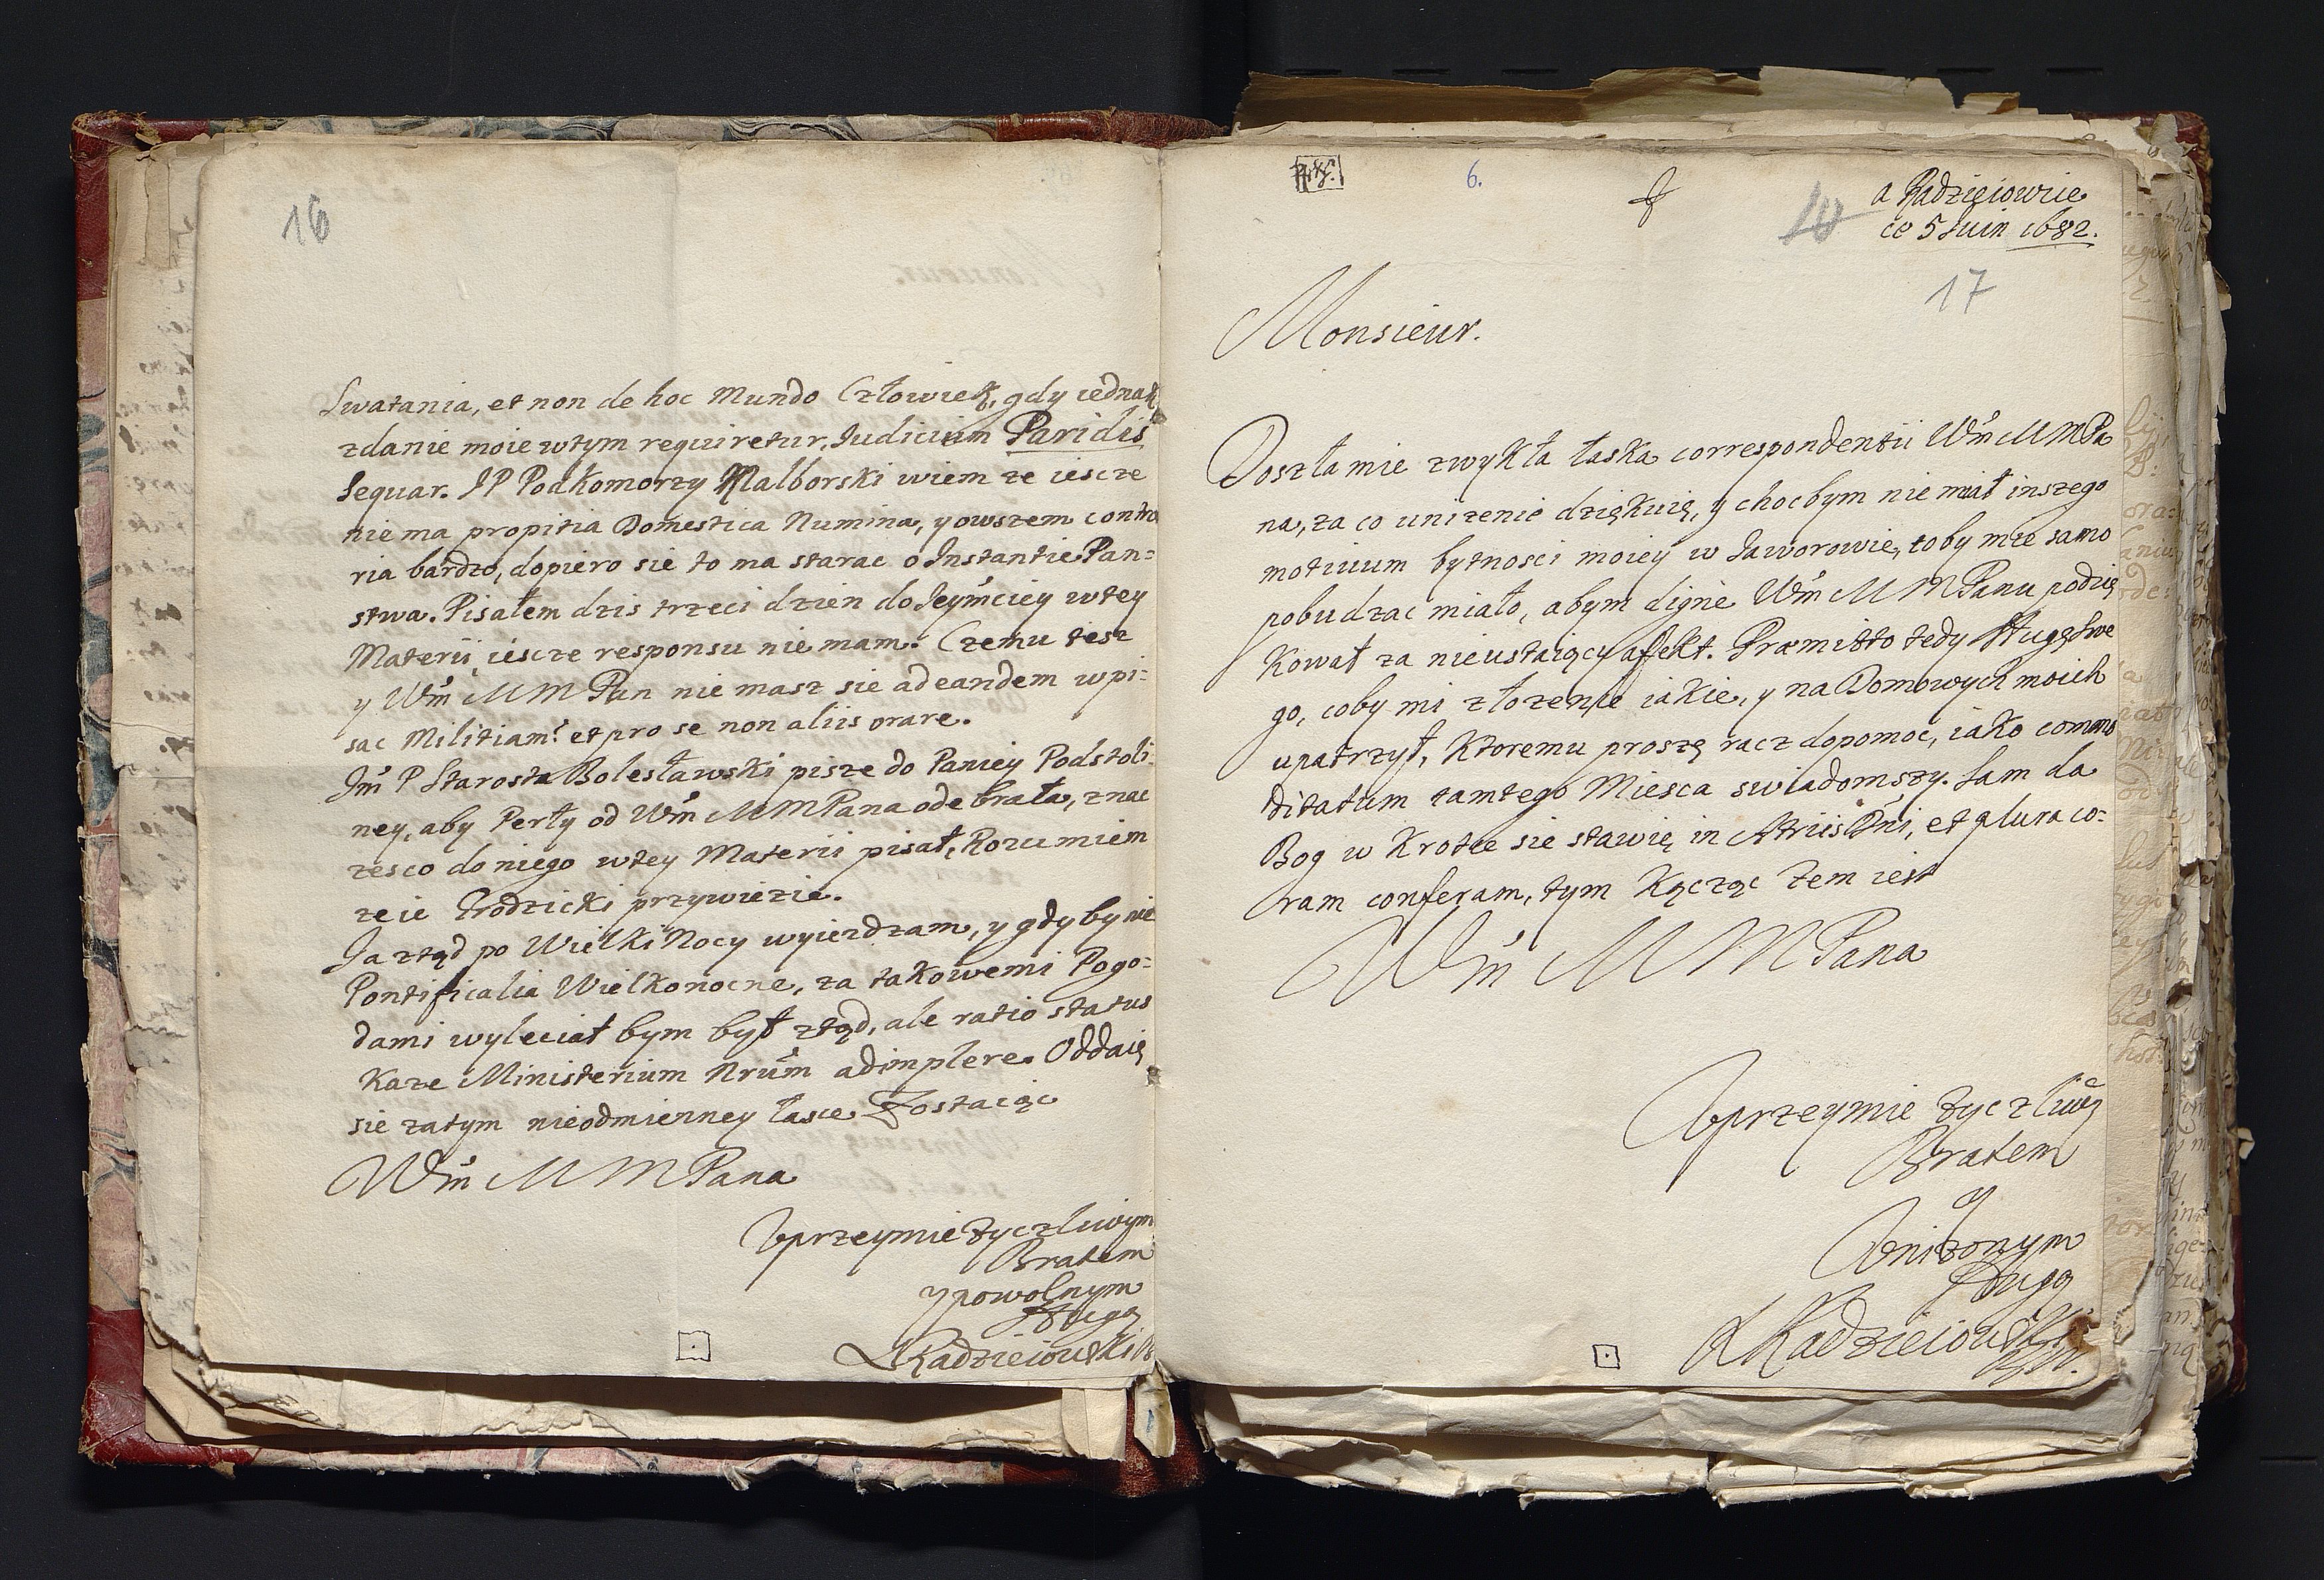 16
Swatania, et non de hoc Mundo Człowiek, gdy iednak
zdanie moie wtym requiretur, Iudicium Paridis
sequar. JP Podkomorzy Malborski wiem ze iescze
nie ma propitia Domestica Numina, y owszem contra
ria bardzo, dopiero sie to ma starac o Instantie Pan=
stwa. Pisałem dzis trzeci dzien do Jeymciey wtey
Materii, iescze responsu nie mam. Czemu tesz
y Wm̃ M M Pan nie masz sie ad eandem wpi=
sac Militiam? et pro se non aliis orare.
Jm̃ P Starosta Bolesławski pisze do Paniey Podstoli=
ney, aby Perły od Wm̃ M M Pana odebrała, znac
zesco do niego wtey Materii pisał, Rozumiem
ze ie Grodzicki przywiezie.
Ja ztąd po Wielki Nocy wyiezdzam, y gdyby nie
Pontificalia Wielkonocne, za takowemi Pogo=
dami wyleciał bym był ztąd, ale ratio status
Kaze Ministerium Nrũm adimplere. Oddaię
sie zatym nieodmienney łasce Zostaiąc
Wm̃ M M Pana
Uprzeymie Zyczliwym
Bratem
y powolnym
sługą
Radzieiowski
6.
10
a Radzieiowie
ce 5 Iuin 1682.
17
Monsieur.
Doszła mie zwykła łaska correspondentii Wm̃ M M Pa
na, za co unizenie dziękuię, y chocbym nie miał inszego
motiuum bytnosci moiey w Jaworowie, toby mie samo
pobudzac miało, abym digne Wm̃ M M Panu podzię
Kował za nieustaiący afekt. Præmitto tedy sługę swe
go, coby mi złozenie iakie, y na Domowych moich
upatrzył, Ktoremu proszę racz dopomoc, iako commo
ditatum tamtego Miesca swiadomszy. Sam da
Bog w Krotce sie stawię in Atriis Dni, et plura co=
ram conferam, tym Kącząc Zem iest
Wm̃ M M Pana
Uprzeymie Zyczliwy
Bratem
y
Unizonym
sługą
Radzieiowski